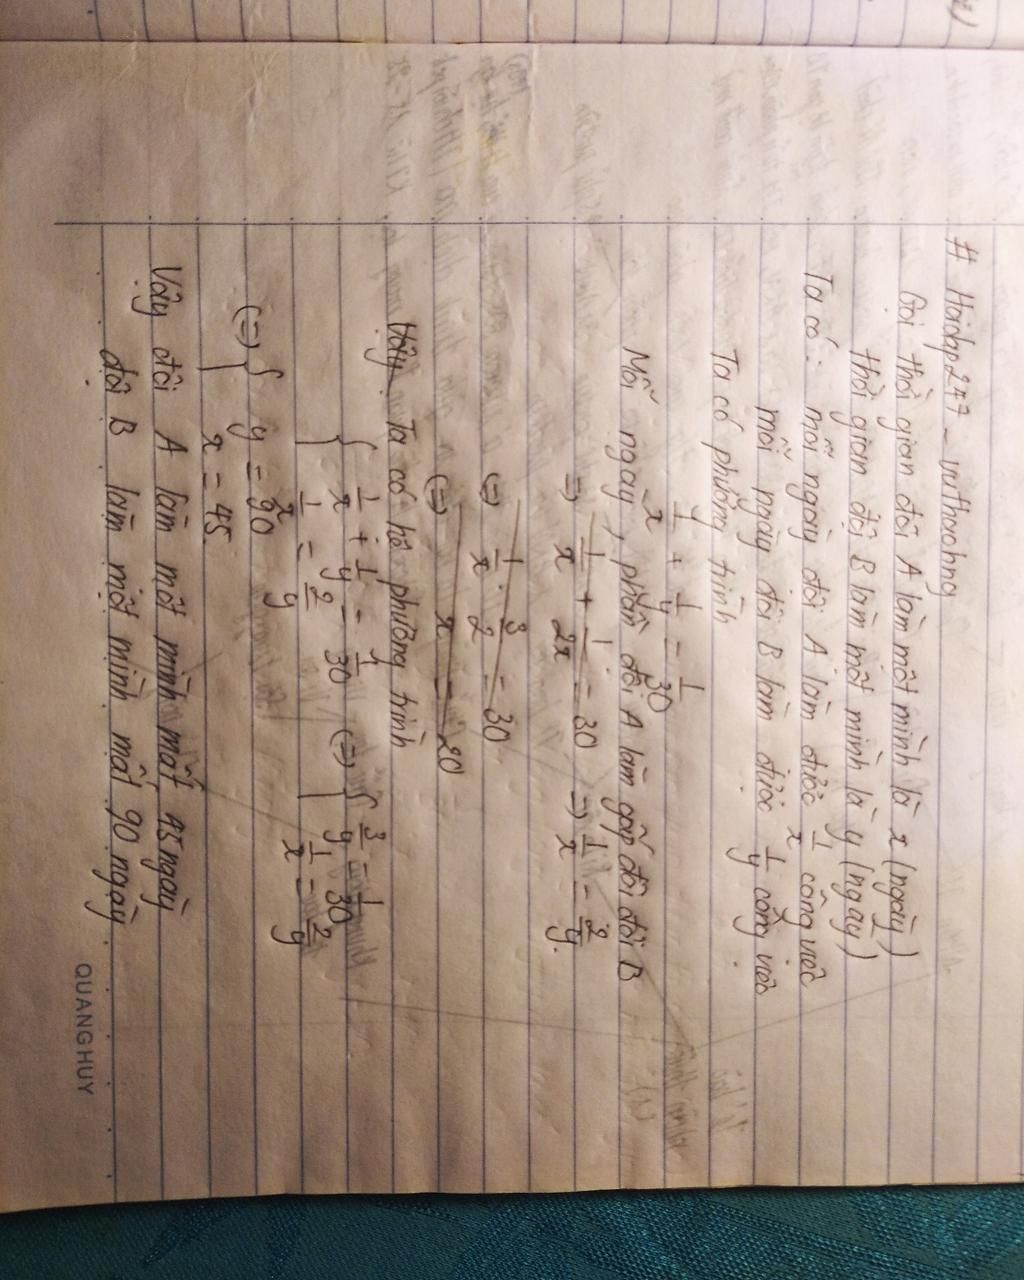 # Hoidap247 _
Gọi thời gian đội A làm một mình là x (ngày)
thời gian đội B làm một mình là y (ngày)
Ta có: mỗi ngày đội A làm được 1/x công việc
mỗi ngày đội B làm được 1/y công việc
Ta có phương trình
1/x + 1/y = 1/30
Mỗi ngày, phần đội A làm gấp đôi đội B
=> 1/x + 1/2x = 30 => 1/x = 2/y.
(=) 1/x . 3/2 = 30
(=) x = 20
Vậy Ta có hệ phương trình
{ 1/x + 1/y = 1/30 (=) { 3/y = 1/30
1/x = 2/y 1/x = 2/y
(=) { y = 90
x = 45
Vậy đội A làm một mình mất 45 ngày
đội B làm một mình mất 90 ngày
QUANG HUY